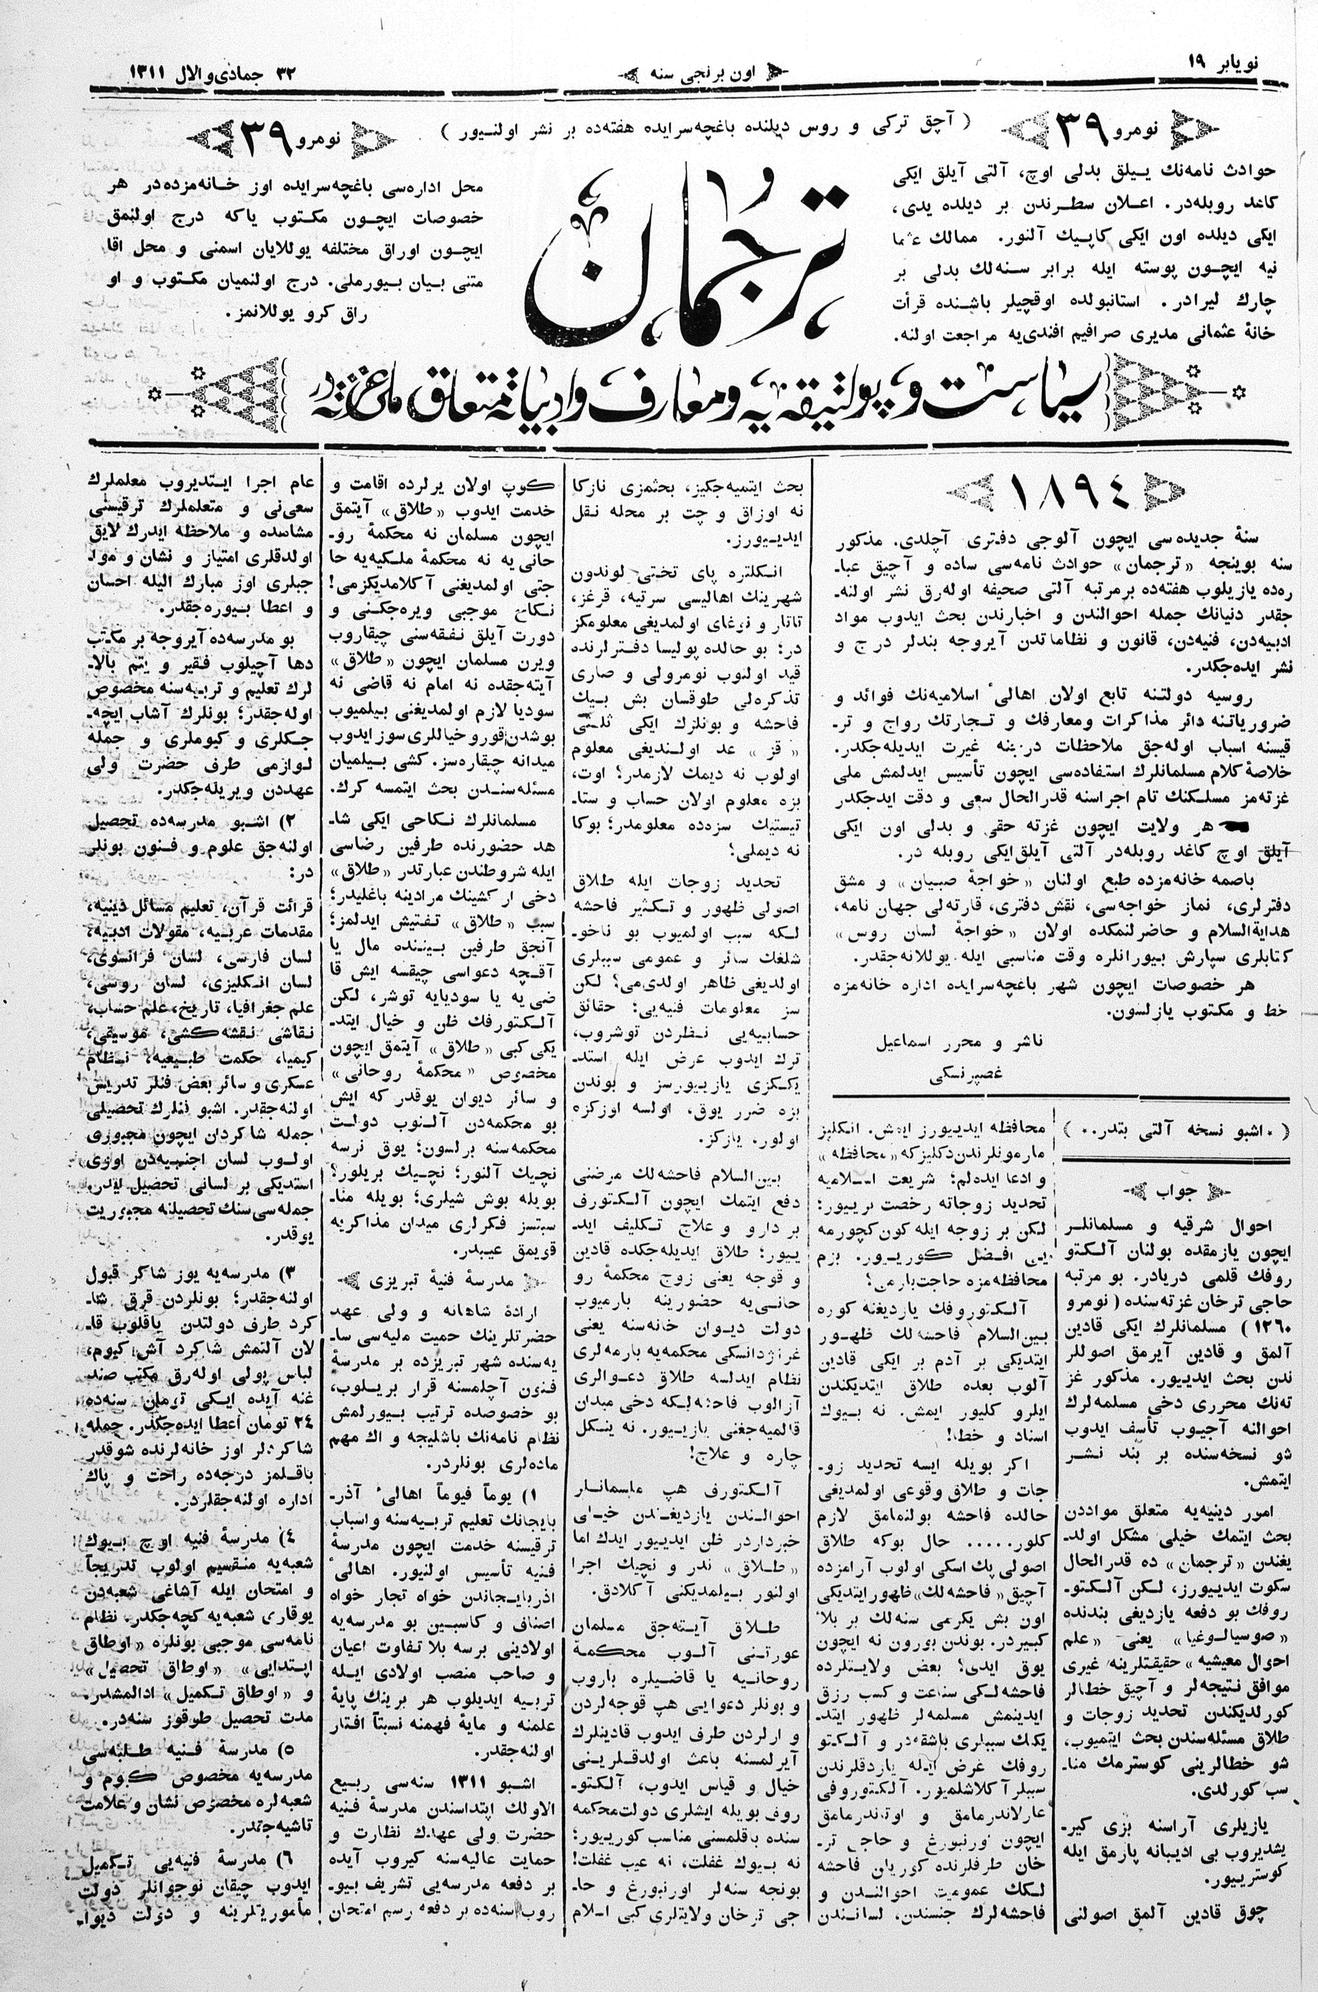 نویابر ١٩
اون برنجی سنه
٣٢ جمادی‌والال ١٣١١
نومرو ٣٩
( آچق ترکی و روس دیلنده باغچه‌سرایده هفته‌ده بر نشر اولنیور )
نومرو ٣٩
حوادث نامه‌نك ییلق بدلی اوچ، آلتی آیلق ایکی
کاغد روبله‌در. اعلان سطرندن بر دیلده یدی،
ایکی دیلده اون ایکی کاپیك آلنور. ممالك عثما
نیه ایچون پوسته ایله برابر سنه‌لك بدلی بر
چارك لیرادر. استانبولده اوقچیلر باشنده قرأت
خانهٔ عثمانی مدیری صرافیم افندی‌یه مراجعت اولنه.
ترجمان
محل اداره‌سی باغچه‌سرایده اوز خانه‌مزده‌در هر
خصوصات ایچون مکتوب یاکه درج اولنمق
ایچون اوراق مختلفه یوللایان اسمنی و محل اقا
متنی بیان بیورملی. درج اولنمیان مکتوب و او
راق کرو یوللانمز.
سیاست و پولتیقه‌یه و معارف و ادبیاته متعلق ملی غزته‌در
١٨٩٤
سنهٔ جدیده‌سی ایچون آلوجی دفتری آچلدی. مذکور
سنه بوینجه «ترجمان» حوادث نامه‌سی ساده و آچیق عبا-
ره‌ده یازیلوب هفته‌ده برمرتبه آلتی صحیفه اوله‌رق نشر اولنه-
جقدر دنیانك جمله احوالندن و اخبارندن بحث ایدوب مواد
ادبیه‌دن، فنیه‌دن، قانون و نظاماتدن آیروجه بندلر درج و
نشر ایده‌جکدر.
روسیه دولتنه تابع اولان اهالیٔ اسلامیه‌نك فوائد و
ضروریاتنه دائر مذاکرات ومعارفك و تجارتك رواج و تر-
قیسنه اسباب اوله‌جق ملاحظات درجنه غیرت ایدیله‌جکدر.
خلاصهٔ کلام مسلمانلرك استفاده‌سی ایچون تأسیس ایدلمش ملی
غزته‌مز مسلکنك تام اجراسنه قدرالحال سعی و دقت ایدجکدر
هر ولایت ایچون غزته حقی و بدلی اون ایکی
آیلق اوچ کاغد روبله‌در آلتی آیلق ایکی روبله در.
باصمه خانه‌مزده طبع اولنان «خواجهٔ صبیان» و مشق
دفترلری، نماز خواجه‌سی، نقش دفتری، قارته‌لی جهان نامه،
هدایةالسلام و حاضرلنمکده اولان «خواجهٔ لسان روس»
کتابلری سپارش بیورانلره وقت مناسبی ایله یوللانه‌جقدر.
هر خصوصات ایچون شهر باغچه‌سرایده اداره خانه‌مزه
خط و مکتوب یازلسون.
ناشر و محرر اسماعیل
غصپرنسکی
( اشبو نسخه آلتی بتدر.. )
جواب
احوال شرقیه و مسلمانلر
ایچون یازمقده بولنان آلکتو
روفك قلمی دریادر. بو مرتبه
حاجی ترخان غزته‌سنده ( نومرو
١٢٦٠ ) مسلمانلرك ایکی قادین
آلمق و قادین آیرمق اصوللر
ندن بحث ایدییور. مذکور غز
ته‌نك محرری دخی مسلمه‌لرك
احوالنه آجیوب تأسف ایدوب
شو نسخه‌سنده بر بند نشر
ایتمش.
امور دینیه‌یه متعلق مواددن
بحث ایتمك خیلی مشکل اولد-
یغندن «ترجمان» ده قدرالحال
سکوت ایدییورز، لکن آلکتو-
روفك بو دفعه یازدیغی بندنده
«صوسیالوغیا» یعنی «علم
احوال معیشیه» حقیقتلرینه غیری
موافق نتیجه‌لر و آچیق خطالر
کورلدیکندن تحدید زوجات و
طلاق مسئله‌سندن بحث ایتمیوب،
شو خطالرینی کوسترمك منا-
سب کورلدی.
یازیلری آراسنه بزی کیر-
یشدیروب بی ادیبانه پارمق ایله
کوسترییور.
چوق قادین آلمق اصولنی
محافظه ایدییورز ایمش. انکلیز
مارمونلرندن دکلیزکه «محافظه»
و ادعا ایده‌لم؛ شریعت اسلامیه
تحدید زوجاته رخصت بریور؛
لکن بر زوجه ایله کون کچورمه
یی افضل کورییور. بزم
محافظه مزه حاجت بارمی؟
آلکتوروفك یازدیغنه کوره
بین‌السلام فاحشه لك ظهور
ایتدیکی بر آدم بر ایکی قادین
آلوب بعده طلاق ایتدیکندن
ایلرو کلیور ایمش. نه بیوك
اسناد و خطا!
اکر بویله ایسه تحدید زو-
جات و طلاق وقوعی اولمدیغی
حالده فاحشه بولنمامق لازم
کلور..... حال بوکه طلاق
اصولی پك اسکی اولوب آرامزده
آچیق «فاحشه‌لك» ظهور ایتدیکی
اون بش یکرمی سنه‌لك بر بلای
کبیردر. بوندن بورون نه ایچون
یوق ایدی؟ بعض ولایتلرده
فاحشه‌لکی صناعت و کسب رزق
ایدینمش مسلمه‌لر ظهور ایتد-
یکنك سببلری باشقه‌در و آلکتو
روفك عرض ایله یازدقلرندن
سببلر آکلاشلمیور. آلکتوروفی
عارلاندرمامق و اوتندرمامق
ایچون اورنبورغ و حاجی تر-
خان طرفلرنده کوریلن فاحشه
لکك عمومیت احوالندن و
فاحشه‌لرك جنسندن، لسانندن
بحث ایتمیه‌جکیز، بحثمزی نازکا
نه اوزاق و چت بر محله نقل
ایدییورز.
انکلتره پای تختی لوندون
شهرینك اهالیسی سرتیه، قرغز،
تاتار و نوغای اولمدیغی معلومکز
در؛ بو حالده پولیسا دفترلرنده
قید اولنوب نومرولی و صاری
تذکره‌لی طوقسان بش بیك
فاحشه و بونلرك ایکی ثلثی
«قز» عد اولندیغی معلوم
اولوب نه دیمك لازمدر؟ اوت،
بزه معلوم اولان حساب و ستا-
تیستیك سزه‌ده معلومدر؛ بوکا
نه دیملی؟
تحدید زوجات ایله طلاق
اصولی ظهور و تکثیر فاحشه
لکه سبب اولمیوب بو ناخو-
شلغك سائر و عمومی سببلری
اولدیغی ظاهر اولدی‌می؟ لکن
سز معلومات فنیه‌یی؛ حقائق
حسابیه‌یی نظردن توشروب،
ترك ایدوب عرض ایله استد-
یککزی یازییورسز و بوندن
بزه ضرر یوق، اولسه اوزکزه
اولور. یازکز.
بین‌السلام فاحشه‌لك مرضنی
دفع ایتمك ایچون آلکتورف
بر دارو و علاج تکلیف اید-
ییور؛ طلاق ایدیله‌جکده قادین
و قوجه یعنی زوج محکمهٔ رو
حانی‌یه حضورینه بارمیوب
دولت دیوان خانه‌سنه یعنی
غراژدانسکی محکمه‌یه بارمه‌لری
نظام ایدلسه طلاق دعوالری
آزالوب فاحشه‌لکه دخی میدان
قالمیه‌جغنی یازییور. نه ینکل
چاره و علاج!
آلکتورف هپ مسلمانلر
احوالندن یازدیغندن خیلی
خبرداردر ظن ایدییور ایدك اما
«طلاق» ندر و نچیك اجرا
اولنور بیلمدیکنی آکلادق.
طلاق آیته‌جق مسلمان
عورتنی آلوب محکمهٔ
روحانیه یا قاضیلره باروب
و بونلر دعوایی هپ قوجه‌لردن
و ارلردن طرف ایدوب قادینلرك
آیرلمسنه باعث اولدقلرینی
خیال و قیاس ایدوب، آلکتو-
روف بویله ایشلری دولت محکمه
سنده باقلمسنی مناسب کورییور؛
نه بیوك غفلت، نه عیب غفلت!
بونجه سنه‌لر اورنبورغ و حا-
جی ترخان ولایتلری کبی اسلام
کوپ اولان یرلرده اقامت و
خدمت ایدوب «طلاق» آیتمق
ایچون مسلمان نه محکمهٔ رو-
حانی‌یه نه محکمهٔ ملکیه‌یه حا
جتی اولمدیغنی آکلامدیکزمی!
نکاح موجبی ویره‌جکنی و
دورت آیلق نفقه‌سنی چیقاروب
ویرن مسلمان ایچون «طلاق»
آیته‌جقده نه امام نه قاضی نه
سودیا لازم اولمدیغنی بیلمیوب
بوشدن قورو خیاللری سوز ایدوب
میدانه چیقاره‌سز. کشی بیلمیان
مسئله‌سندن بحث ایتمسه کرك.
مسلمانلرك نکاحی ایکی شا-
هد حضورنده طرفین رضاسی
ایله شروطندن عبارتدر «طلاق»
دخی ار کشینك مرادینه باغلیدر؛
سبب «طلاق» تفتیش ایدلمز؛
آنجق طرفین بیننده مال یا
آقچه دعواسی چیقسه ایش قا
ضی یه یا سودیایه توشر، لکن
آلکتورفك ظن و خیال ایتد-
یکی کبی «طلاق» آیتمق ایچون
مخصوص «محکمهٔ روحانی»
و سائر دیوان یوقدر که ایش
بو محکمه‌دن آلنوب دولت
محکمه‌سنه برلسون؛ یوق نرسه
نچیك آلنور؛ نچیك بریلور؟
بویله بوش شیلری؛ بویله منا-
سبتسز فکرلری میدان مذاکریه
قویمق عیبدر.
مدرسهٔ فنیهٔ تبریزی
ارادهٔ شاهانه و ولی عهد
حضرتلرینك حمیت ملیه‌سی سا-
یه‌سنده شهر تبریزده بر مدرسهٔ
فنون آچلمسنه قرار بریلوب،
بو خصوصده ترتیب بیورلمش
نظام نامه‌نك باشلیجه و اك مهم
ماده‌لری بونلردر.
١) یوماً فیوماً اهالیٔ آذر-
بایجانك تعلیم تربیه‌سنه و اسباب
ترقیسنه خدمت ایچون مدرسهٔ
فنیه تأسیس اولنیور. اهالیٔ
اذربایجاندن خواه تجار خواه
اصناف و کاسبین بو مدرسه‌یه
اولادینی برسه بلا تفاوت اعیان
و صاحب منصب اولادی ایله
تربیه ایدیلوب هر برینك پایهٔ
علمنه و مایهٔ فهمنه نسبتاً افتار
اولنه‌جقدر.
اشبو ١٣١١ سنه‌سی ربیع
الاولك ابتداسندن مدرسهٔ فنیه
حضرت ولی عهدك نظارت و
حمایت عالیه‌سنه کیروب آیده
بر دفعه مدرسه‌یی تشریف بیو-
روب سنه‌ده بر دفعه رسم امتحان
عام اجرا ایتدیروب معلملرك
سعی‌نی و متعلملرك ترقیسنی
مشاهده و ملاحظه ایدرك لایق
اولدقلری امتیاز و نشان و موا-
جبلری اوز مبارك الیله احسان
و اعطا بیوره‌جقدر.
بو مدرسه‌ده آیروجه بر مکتب
دها آچیلوب فقیر و یتم بالا-
لرك تعلیم و تربیه‌سنه مخصوص
اوله‌جقدر؛ بونلرك آشاب ایچه-
جکلری و کیوملری و جمله
لوازمی طرف حضرت ولی
عهددن ویریله‌جکدر.
٢) اشبو مدرسه‌ده تحصیل
اولنه‌جق علوم و فنون بونلر
در:
قرائت قرآن، تعلیم مسائل دینیه،
مقدمات عربیه، مقولات ادبیه،
لسان فارسی، لسان فرانسوی،
لسان انکلیزی، لسان روسی،
علم جغرافیا، تاریخ، علم حساب،
نقاشی نقشه‌کشی، موسیقی،
کیمیا، حکمت طبیعیه، نظام
عسکری و سائر بعض فنلر تدریس
اولنه‌جقدر. اشبو فنلرك تحصیلی
جمله شاکردان ایچون مجبوری
اولوب لسان اجنبیه‌دن اوزی
استدیکی بر لسانی تحصیل ایدر.
جمله‌سی‌سنك تحصیلنه مجبوریت
یوقدر.
٣) مدرسه‌یه یوز شاکر قبول
اولنه‌جقدر؛ بونلردن قرق شا-
کرد طرف دولتدن یاقلوب قا-
لان آلتمش شاکرد آش، کیوم،
لباس پولی اوله‌رق مکتب صند-
غنه آیده ایکی تومان سنه‌ده
٢٤ تومان أعطا ایده‌جکدر. جمله
شاکردلر اوز خانه‌لرنده شوقدر
باقلمز درجه‌ده راحت و پاك
اداره اولنه‌جقلردر.
٤) مدرسهٔ فنیه اوچ بیوك
شعبه‌یه منقسیم اولوب تدریجاً
و امتحان ایله آشاغی شعبه‌دن
یوقاری شعبه‌یه کچه‌جکدر. نظام
نامه‌سی موجبی بونلره «اوطاق
ابتدایی» «اوطاق تحصیل»
و «اوطاق تکمیل» ادالمشدر.
مدت تحصیل طوقوز سنه‌در.
٥) مدرسهٔ فنیه طلبه‌سی
مدرسه‌یه مخصوص کیوم و
شعبه‌لره مخصوص نشان و علامت
تاشیه‌جقدر.
٦) مدرسهٔ فنیه‌یی تکمیل
ایدوب چیقان نوجوانلر دولت
مأموریتلرینه و دولت دیوا-